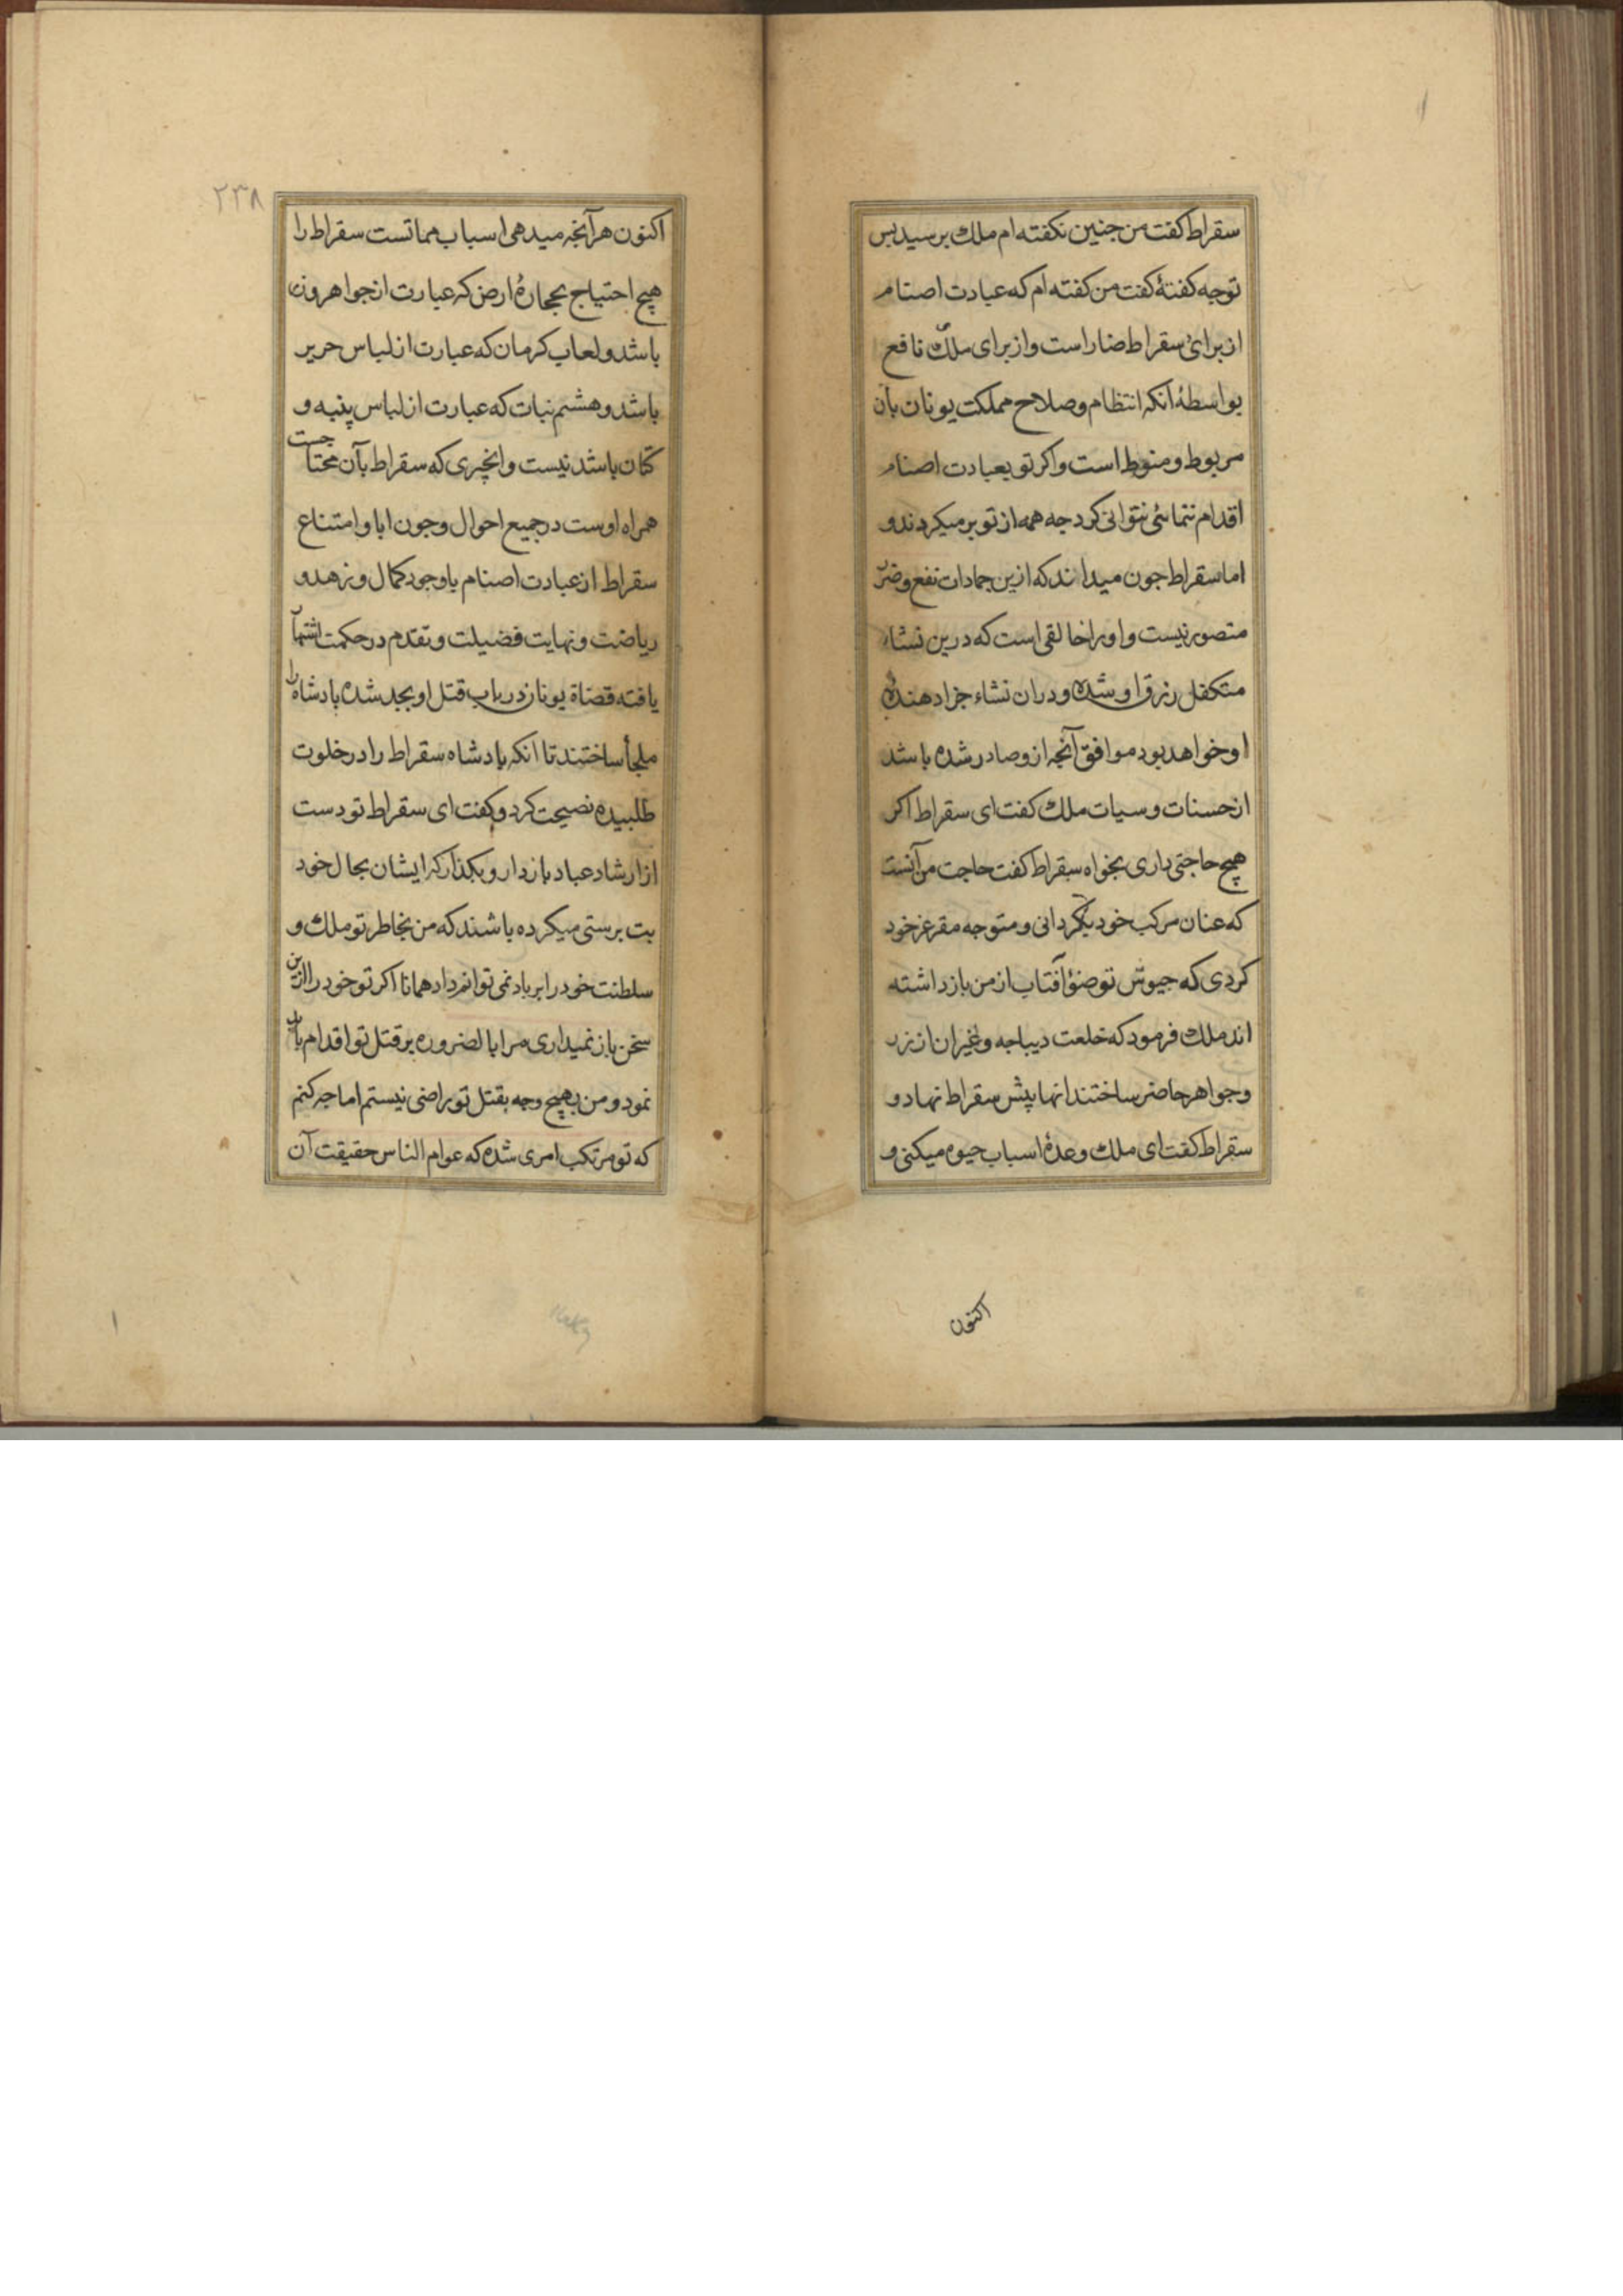 سقراط کفت من جنین نکفته ام ملک برسید بس
توجه کفتهٔ کفت من کفته ام که عبادت اصنام
از برای سقراط ضار است و از برای ملک نافع
بواسطهٔ آنکه انتظام و صلاح مملکت یونان بآن
مربوط و منوط است و اکر تو بعبادت اصنام
اقدام ننمائی نتوانی کرد جه همه از تو بر میکردند و
اما سقراط جون میداند که ازین جمادات نفع و ضرر
متصور نیست و او را خالقی است که درین نشاء
متکفل رزق او شده و دران نشاء جزا دهندهٔ
او خواهد بود موافق آنجه ازو صادر شده باشد
از حسنات و سیات ملک کفت ای سقراط اکر
هیچ حاجتی داری بخواه سقراط کفت حاجت من آنست
که عنان مرکب خود بکردانی و متوجه مقر عز خود
کردی که جیوش تو ضؤ آفتاب از من باز داشته
اند ملک فرمود که خلعت دیباجه و غیران از زر
و جواهر حاضر ساختند انها پیش سقراط نهاد و
سقراط کفت ای ملک وعدهٔ اسباب حیوه میکنی و
اکنون
۲۳۸
اکنون هر آنجه میدهی اسباب مماتست سقراط را
هیچ احتیاج بحجارهٔ ارض که عبارت از جواهر و زر
باشد و لعاب کرمان که عبارت از لباس حریر
باشد و هشیم نبات که عبارت از لباس پنبه و
کتان باشد نیست و انچیزی که سقراط بآن محتاجست
همراه اوست در جمیع احوال و جون ابا و امتناع
سقراط از عبادت اصنام باوجود کمال و زهد و
ریاضت و نهایت فضیلت و تقدم در حکمت اشتهار
یافته قضاة یونان در باب قتل او بجد شده بادشاه را
ملجأ ساختند تا انکه بادشاه سقراط را در خلوت
طلبیده نصیحت کرد و کفت ای سقراط تو دست
از ارشاد عباد باز دار و بکذار که ایشان بحال خود
بت برستی میکرده باشند که من بخاطر تو ملک و
سلطنت خود را بر باد نمی توانم داد همانا اکر تو خود را ازین
سخن باز نمیداری مرا بالضروره بر قتل تو اقدام باید
نمود و من بهیچ وجه بقتل تو راضی نیستم اما جه کنم
که تو مرتکب امری شده که عوام الناس حقیقت آن